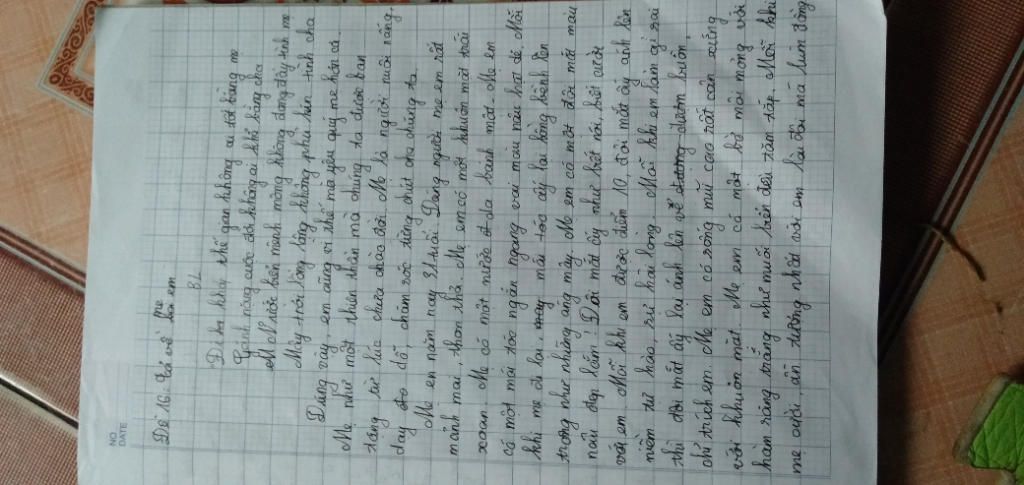 NO
DATE
Đề 16: Tả về mẹ em
BL
"Đi ta khắp thế gan không ai tốt bằng mẹ
Gánh nặng cuộc đời không ai khổ bằng cha
Nước biển mênh mông không đong đầy tình mẹ
Mây trời lồng lộng không phủ kín tình cha
Đúng vậy em cũng vì thế mà yêu quý mẹ hơn cả.
Mẹ như một thiên thần mà chúng ta được ban
tặng từ lúc chưa chào đời. Mẹ là người nuôi nấng,
dạy dỗ, chăm sóc từng chút cho chúng ta.
Mẹ em năm nay 31 tuổi. Dáng người mẹ em rất
mảnh mai, thon thả. Mẹ em có một khuôn mặt trái
xoan. Mẹ có một nước da bánh mật. Mẹ em
có một mái tóc ngắn ngang vai màu nâu hạt dẻ. Mỗi
khi mẹ đi lại, mái tóc ấy lại bồng bềnh lên
trông như những áng mây. Mẹ em có một đôi mắt màu
nâu đẹp lắm! Đôi mắt ấy như biết nói, biết cười
với em. Mỗi khi em được điểm 10, đôi mắt ấy ánh lên
niềm tự hào, sự hài lòng. Mỗi khi em làm gì sai
thì đôi mắt ấy lại ánh lên vẻ đượm buồn,
chỉ trích em. Mẹ em có sống mũi cao rất cân xứng
với khuôn mặt. Mẹ em có một bờ môi mỏng với
hàm răng trắng như muối biển đều tăm tắp. Mỗi khi
mẹ cười, ấn tượng nhất với em là đôi má lúm đồng